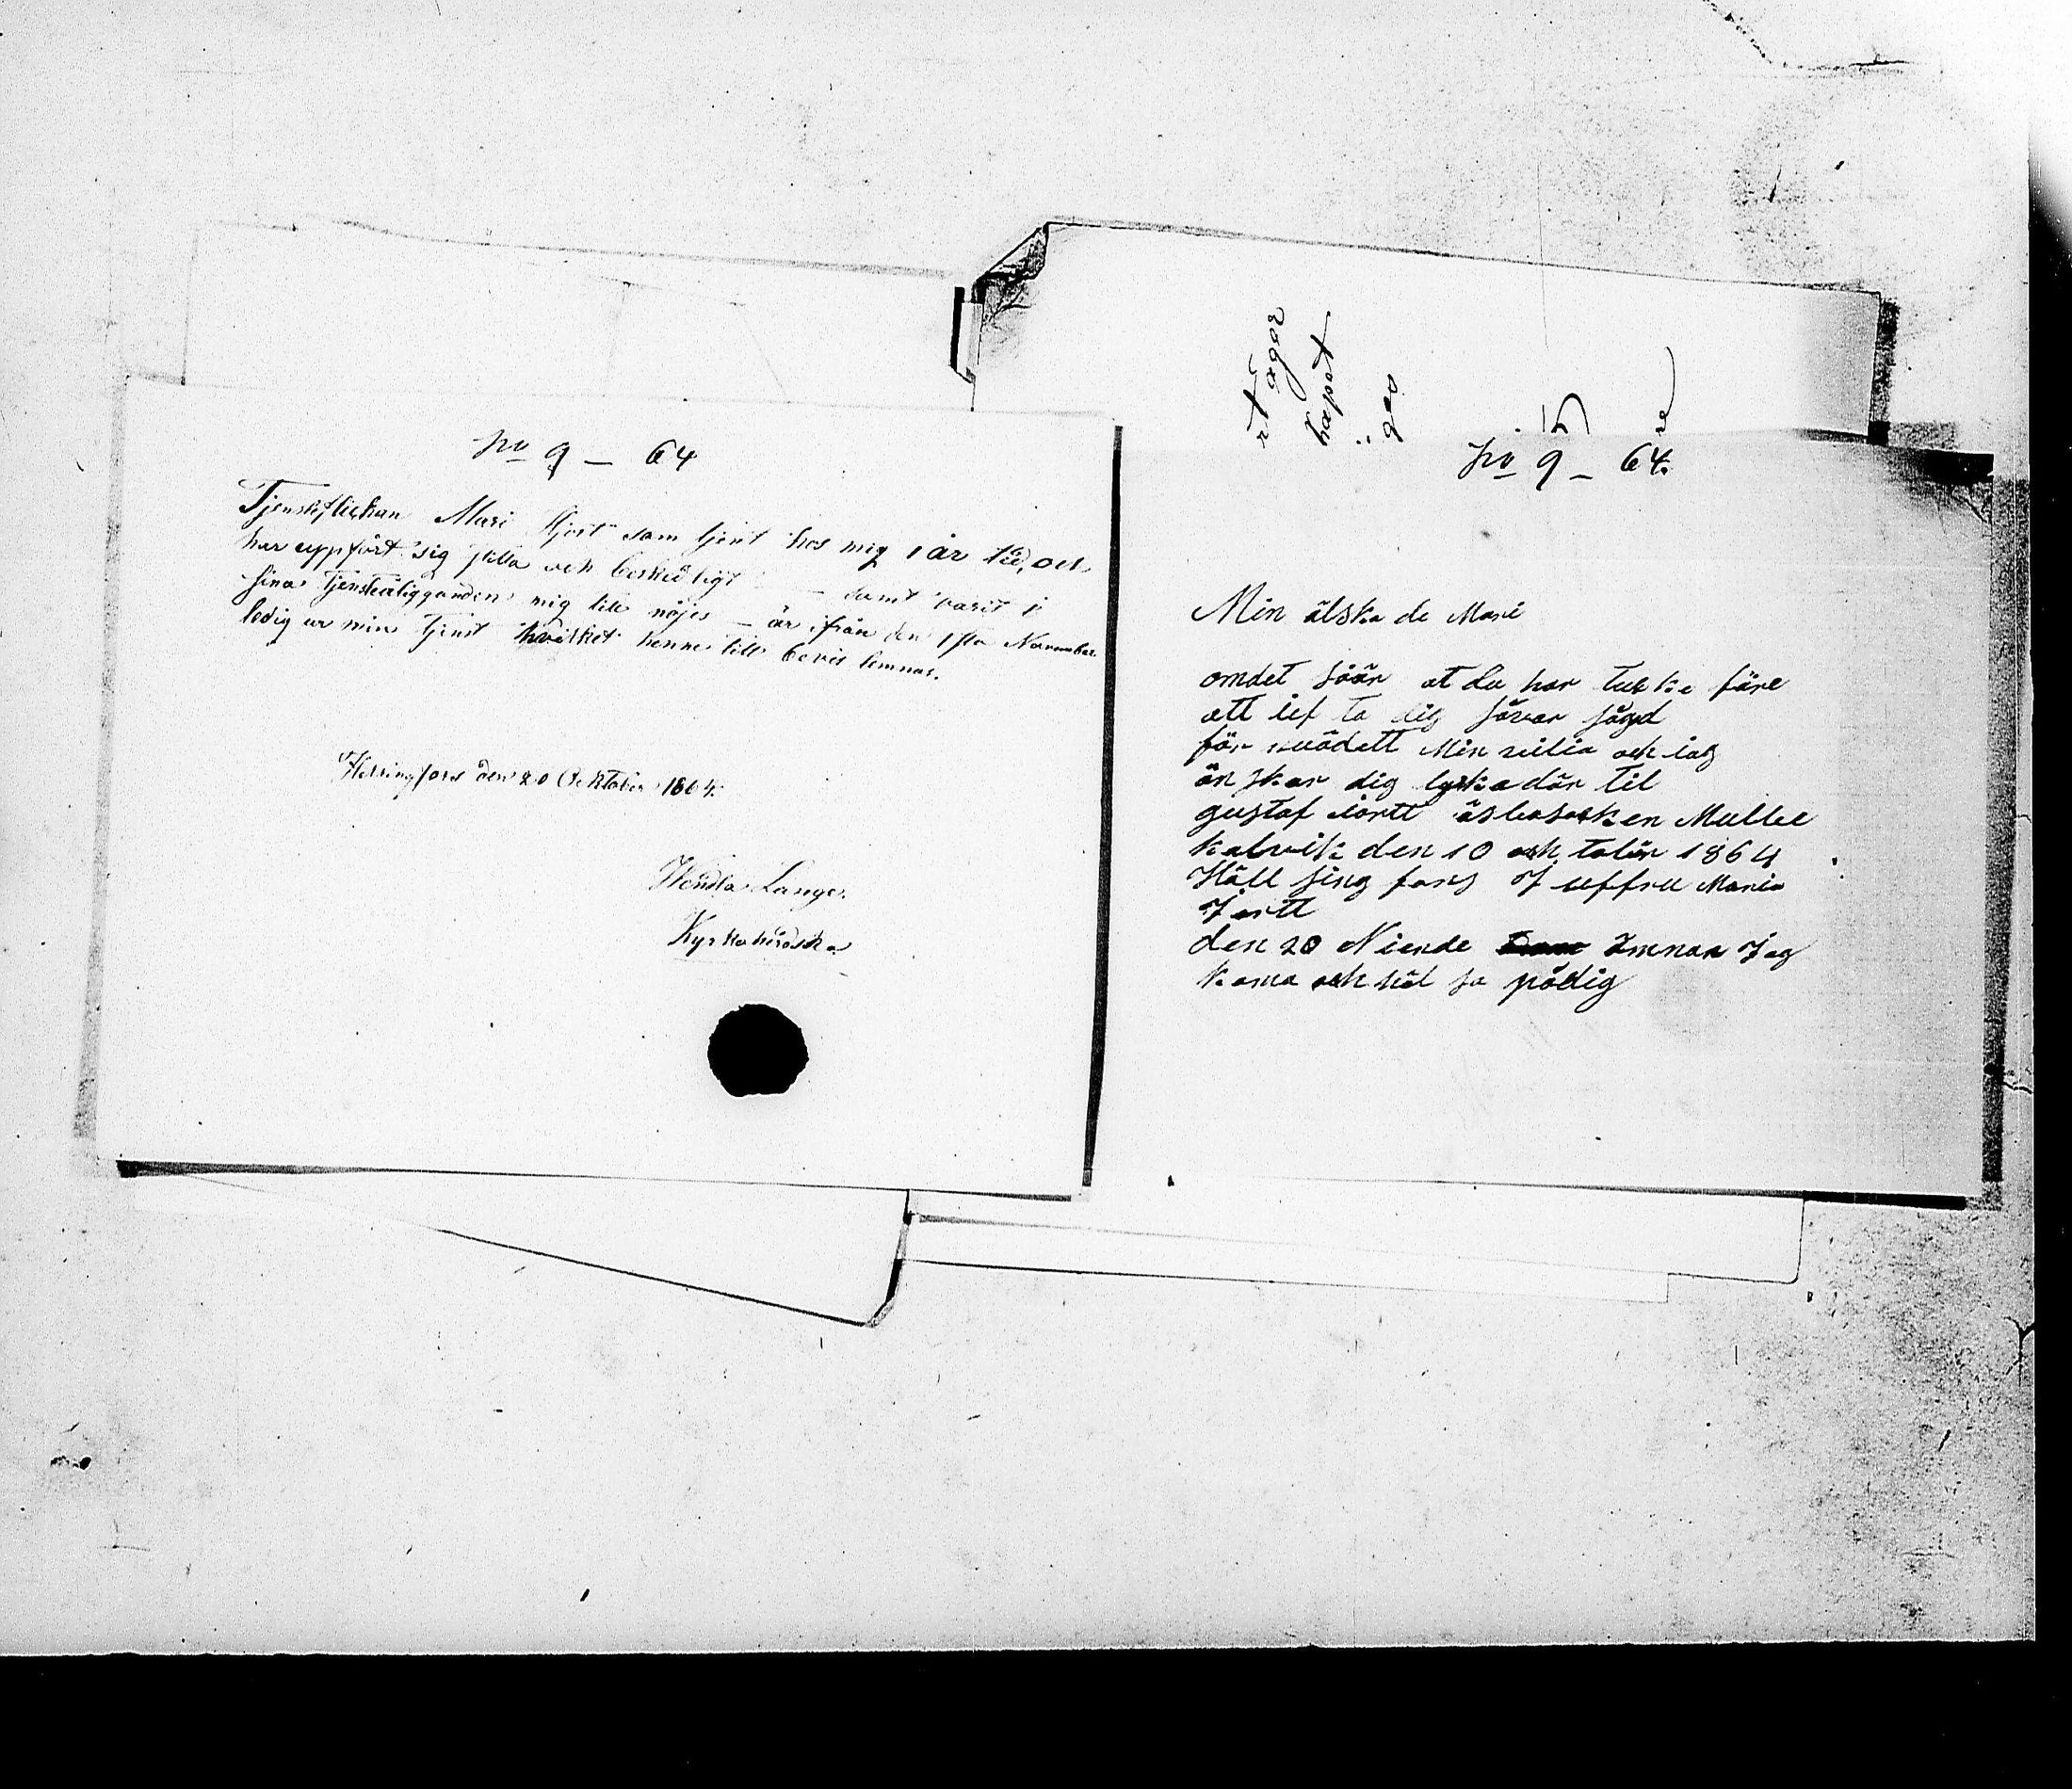 No 9 – 64
Tjensteflickan Mari Hjort som tjent hos mig 1 år tid, och
har uppfört sig stilla och beskedligt – samt varit i
sina tjensteåligganden mig till nöjes – är ifrån den 1sta November
ledig ur min tjenst hvilket henne till bevis lemnas.
Helsingfors den 20 Oktober 1864.
Wendla Lange.
Kyrkoherdska
rt äger
hapet
igas
No 9 – 64.
Min älska de Mari
omdet såär at du har tycke före
att jef ta dig såvar sågd
för nuädett Min vilia och iag
önskar dig lycka där til
gustaf iortt äsbosocken Mulbee
kalvik den 10 ock tober 1864
Häll sing fors Juffru Maria
Jortt
den 20 Niende ämnar Jag
koma och häl sa pådig